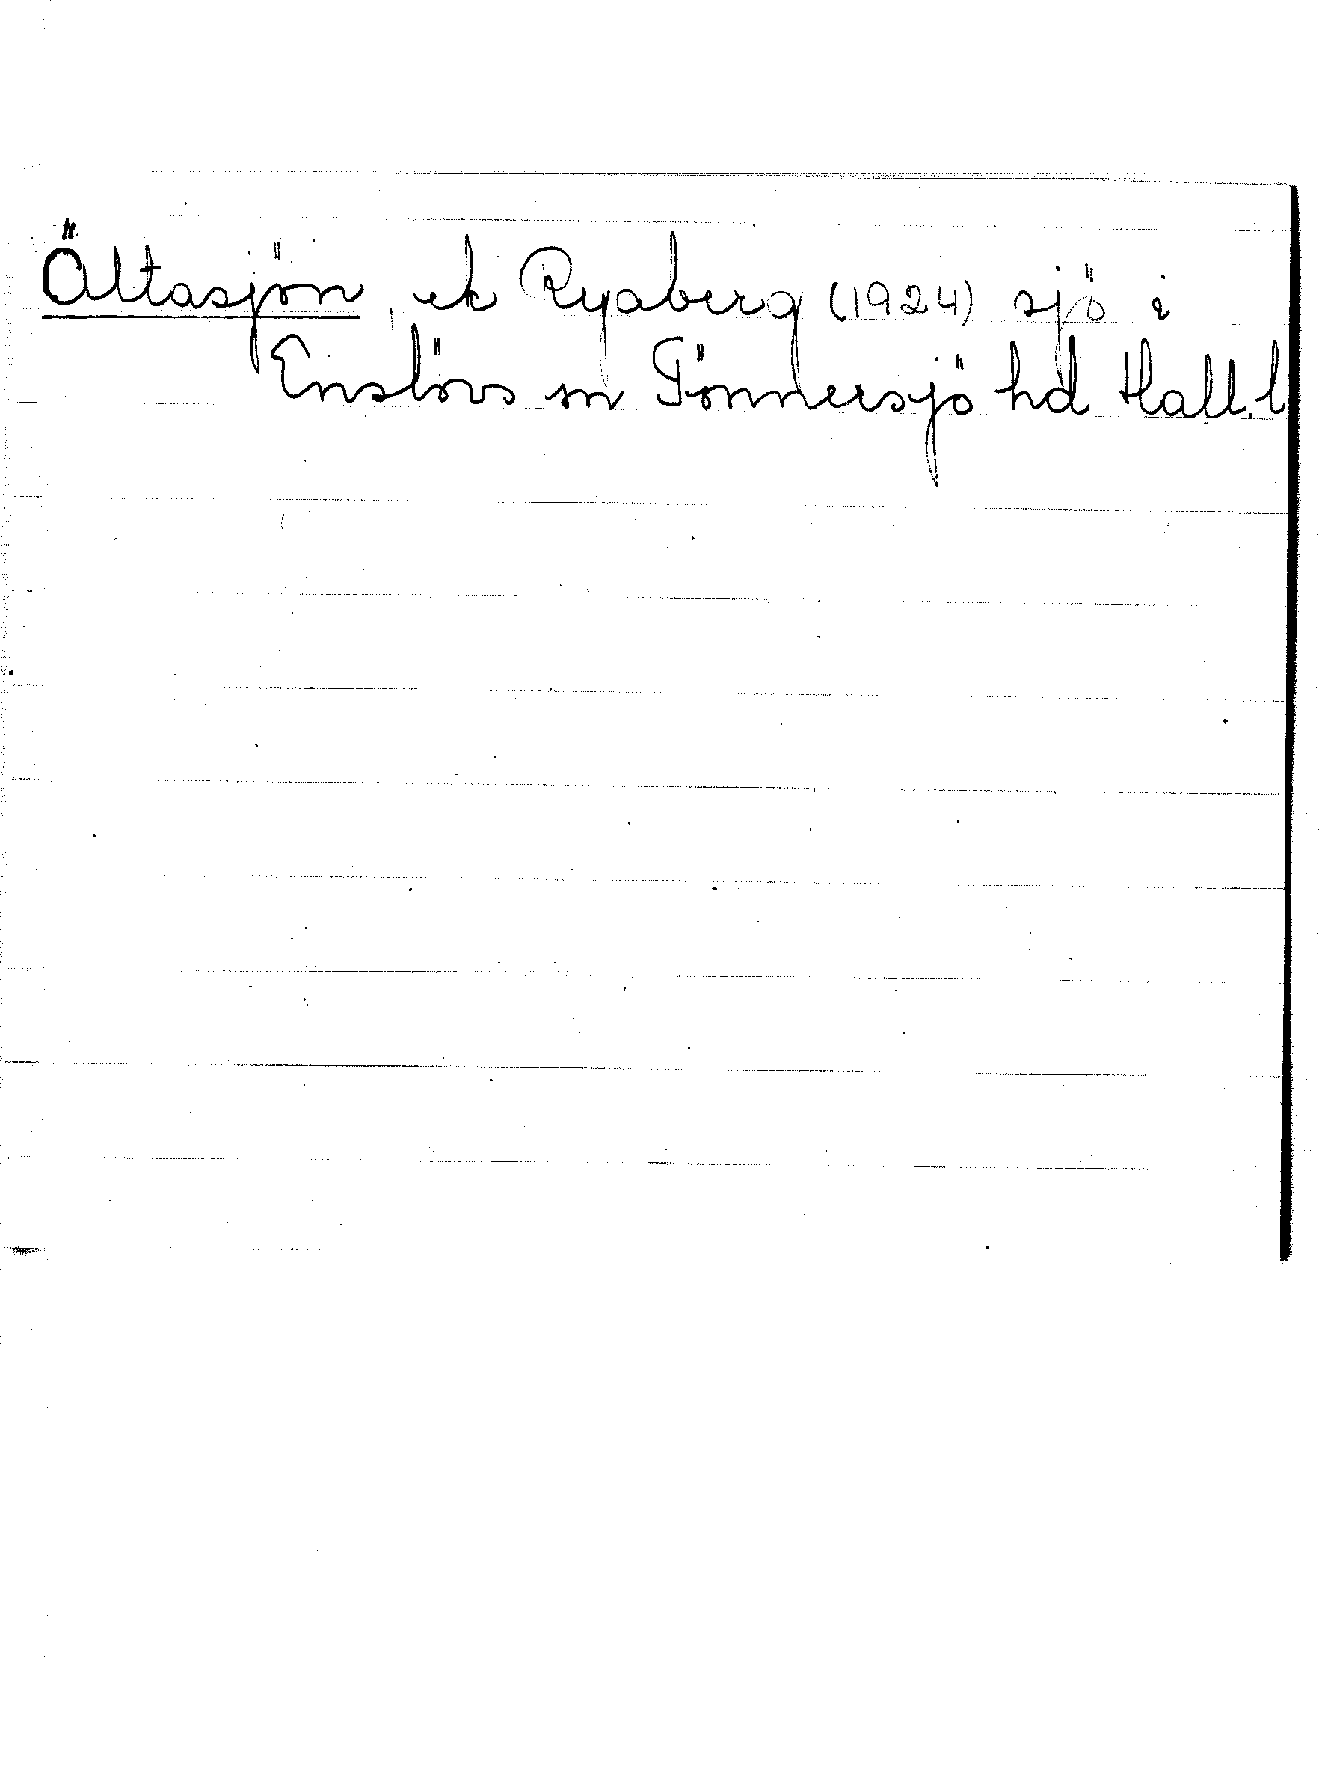 Ältasjön, ek Ryaberg (1924) sjö i
Enslövs sn Tönnersjö hd Hall. l